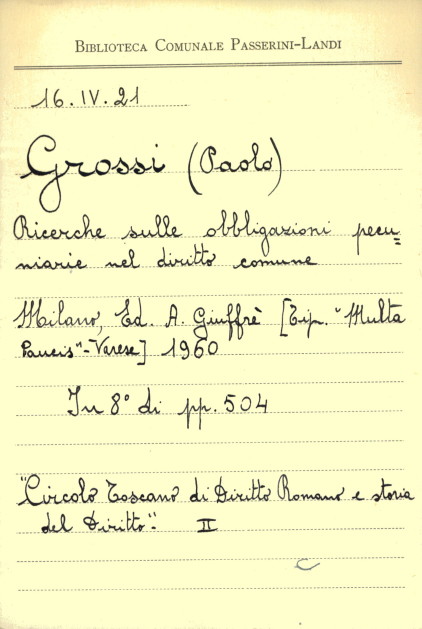 Biblioteca Comunale Passerini-Landi
16.IV.21
Grossi (Paolo)
Ricerche sulle obbligazioni pecu=
niarie nel diritto comune
Milano, Ed. A. Giuffrè [Tip. "Multa
Paucis"-Varese] 1960
In 8° di pp. 504
"Circolo Toscano di Diritto Romano e storia
del Diritto". II